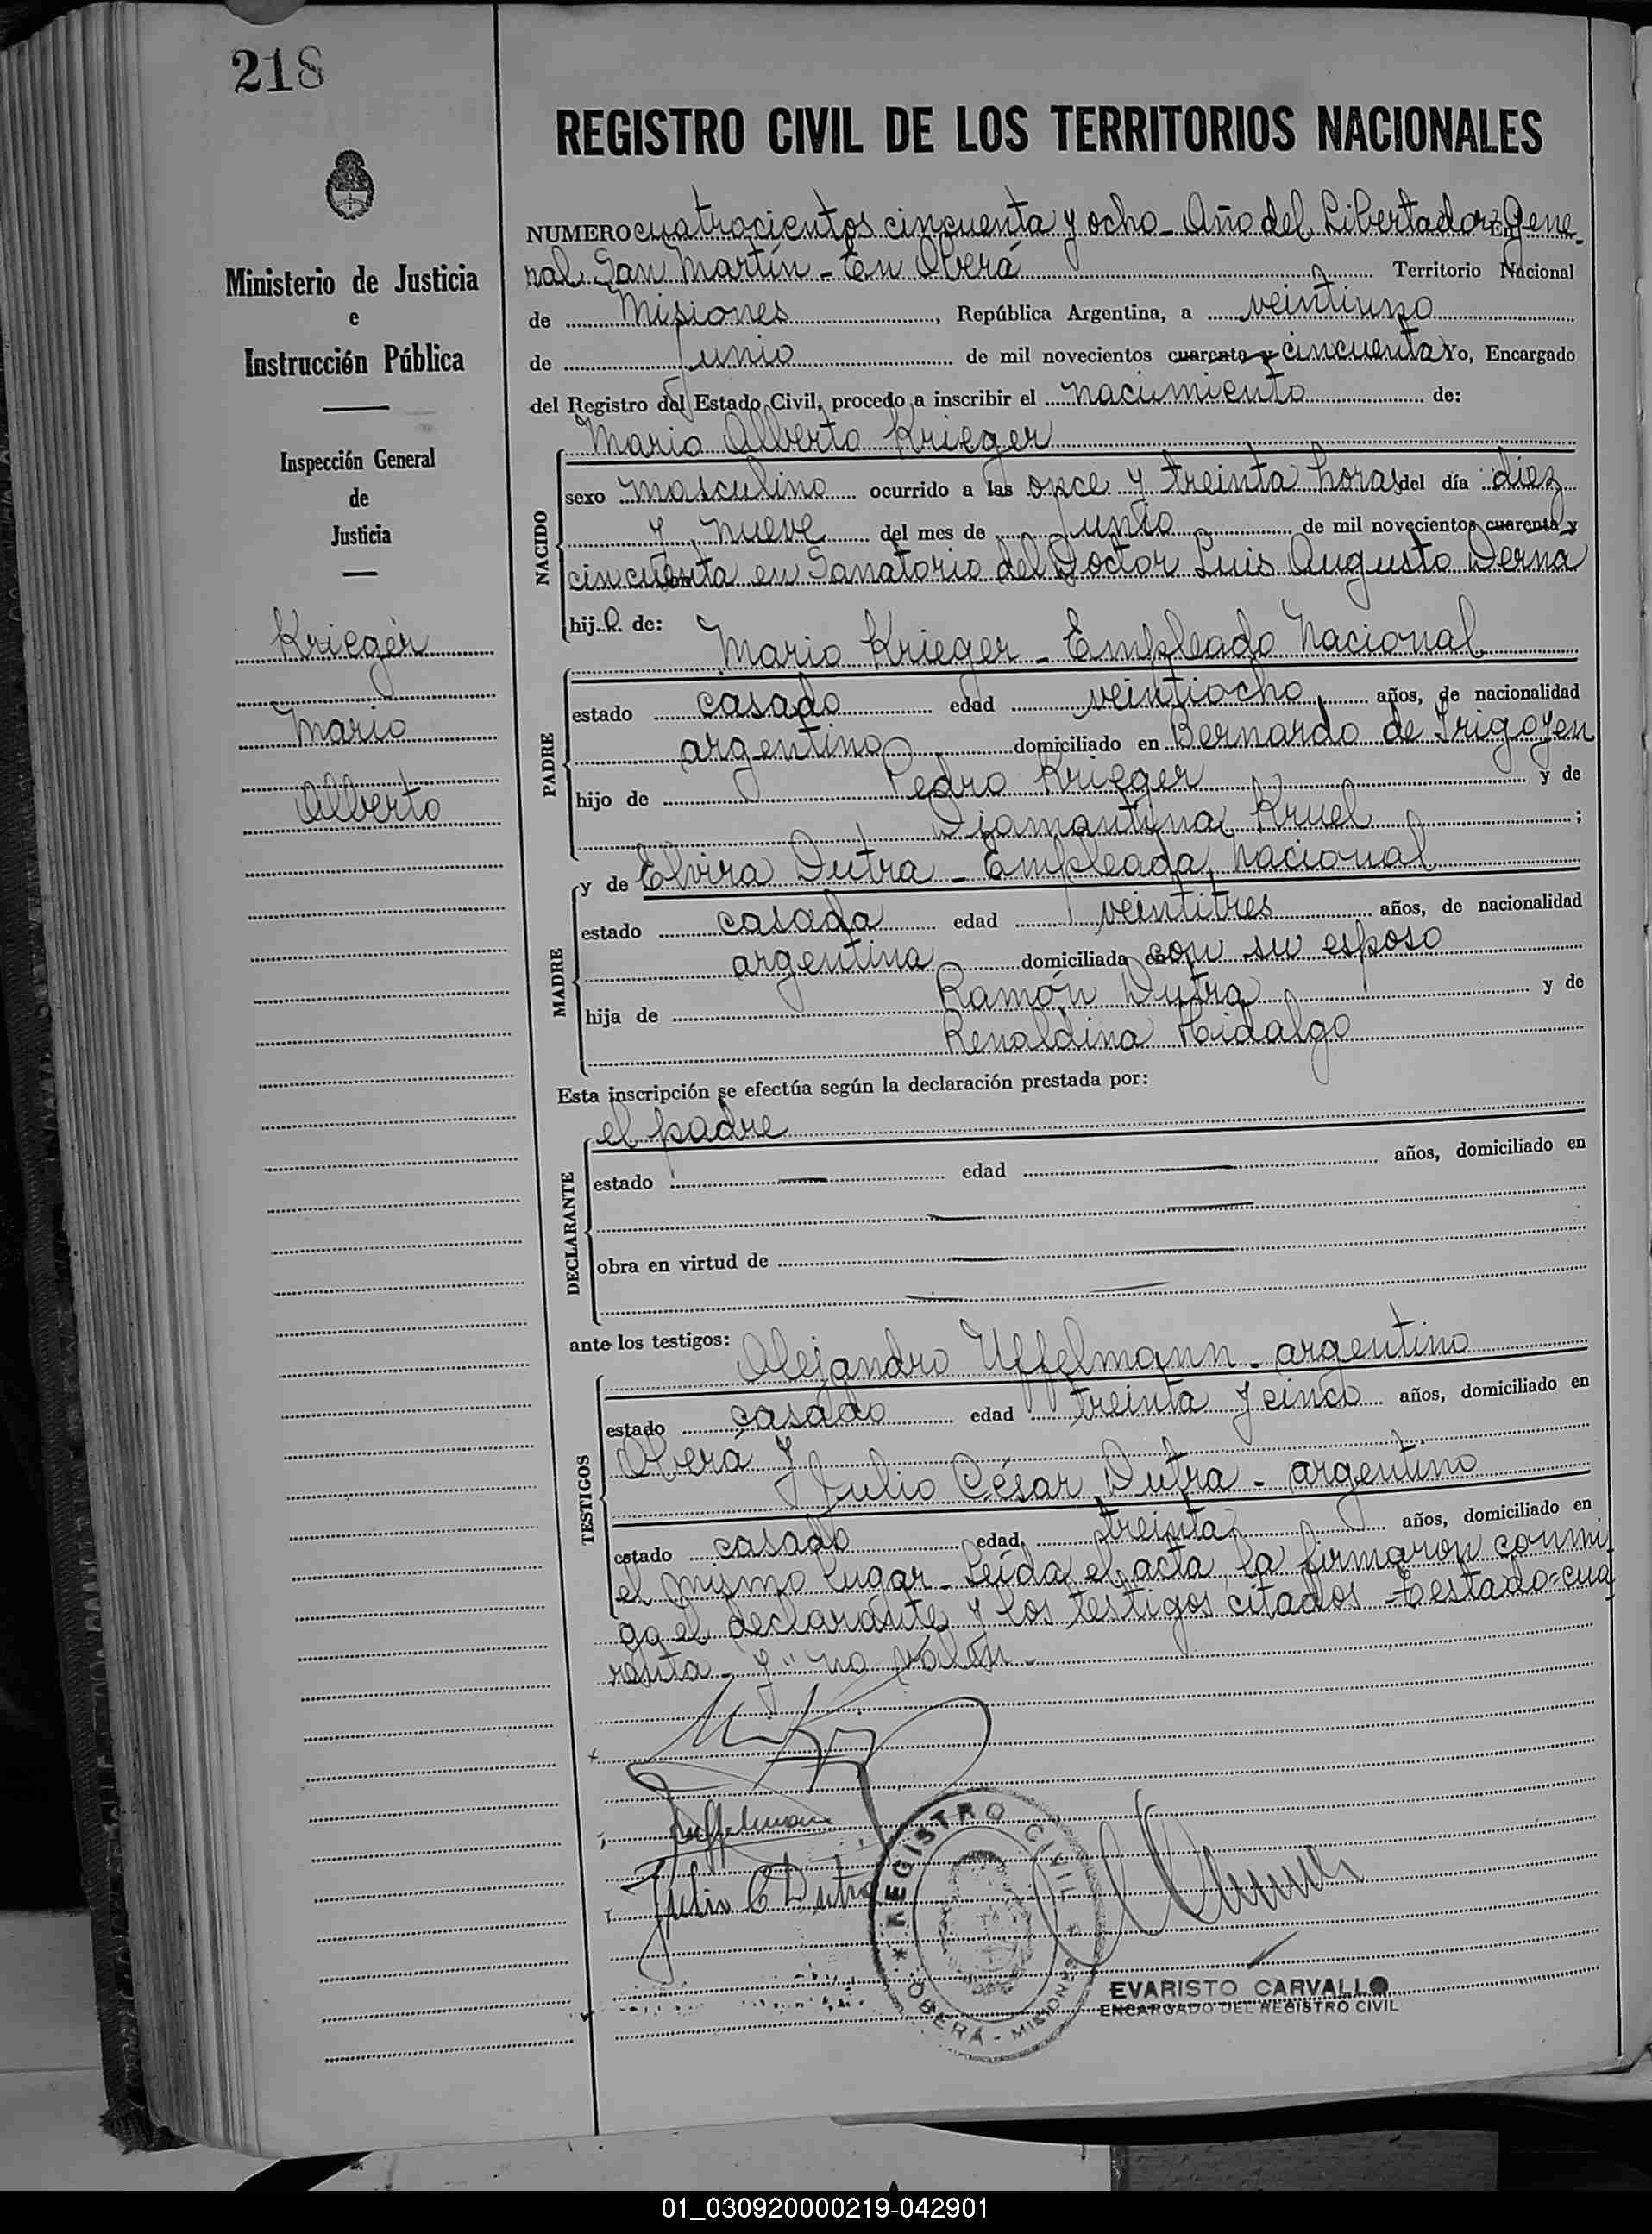 218
REGISTRO CIVIL DE LOS TERRITORIOS NACIONALES
Ministerio de Justicia
e
Instrucción Pública
Inspección General
de
Justicia
Krieger
Mario
Alberto
NUMERO cuatrocientos cincuenta y ocho - Año del Libertador Gene
ral San Martín - En Oberá Territorio Nacional
de Misiones, República Argentina, a veintiuno
de Junio de mil novecientos cuarenta y cincuenta Yo, Encargado
del Registro del Estado Civil, procedo a inscribir el nacimiento de:
Mario Alberto Krieger
NACIDO
sexo masculino ocurrido a las once y treinta horas del día diez
y nueve del mes de Junio de mil novecientos cuarenta y
cincuenta en Sanatorio del Doctor Luis Augusto Derna
hijo de:
Mario Krieger - Empleado Nacional
PADRE
estado casado edad veintiocho años, de nacionalidad
argentino domiciliado en Bernardo de Irigoyen
hijo de Pedro Krieger y de
Diamantina Kruel ;
y de Elvira Dutra - Empleada Nacional
MADRE
estado casada edad veintitres años, de nacionalidad
argentina domiciliada con su esposo
hija de Ramón Dutra y de
Renaldina Hidalgo
Esta inscripción se efectúa según la declaración prestada por:
el padre
DECLARANTE
estado edad años, domiciliado en
obra en virtud de
ante los testigos:
Alejandro Uffelmann - argentino
TESTIGOS
estado casado edad treinta y cinco años, domiciliado en
Oberá y
Julio César Dutra - argentino
estado casado edad treinta años, domiciliado en
el mismo lugar - Leída el acta la firmaron conmi
go el declarante y los testigos citados - Testado=cua
renta - y" no valen -
Uffelmann
Julio C Dutra
REGISTRO CIVIL
OBERÁ - MISIONES
EVARISTO CARVALLO
ENCARGADO DEL REGISTRO CIVIL
01_030920000219-042901